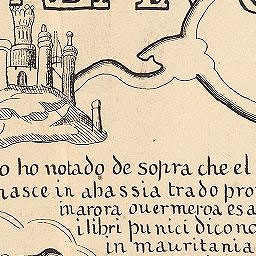 o ho notado de sopra che el
nasce in abassia tra do pro
in arora ouer meroa es a
i libri punici dicono
in mauritania